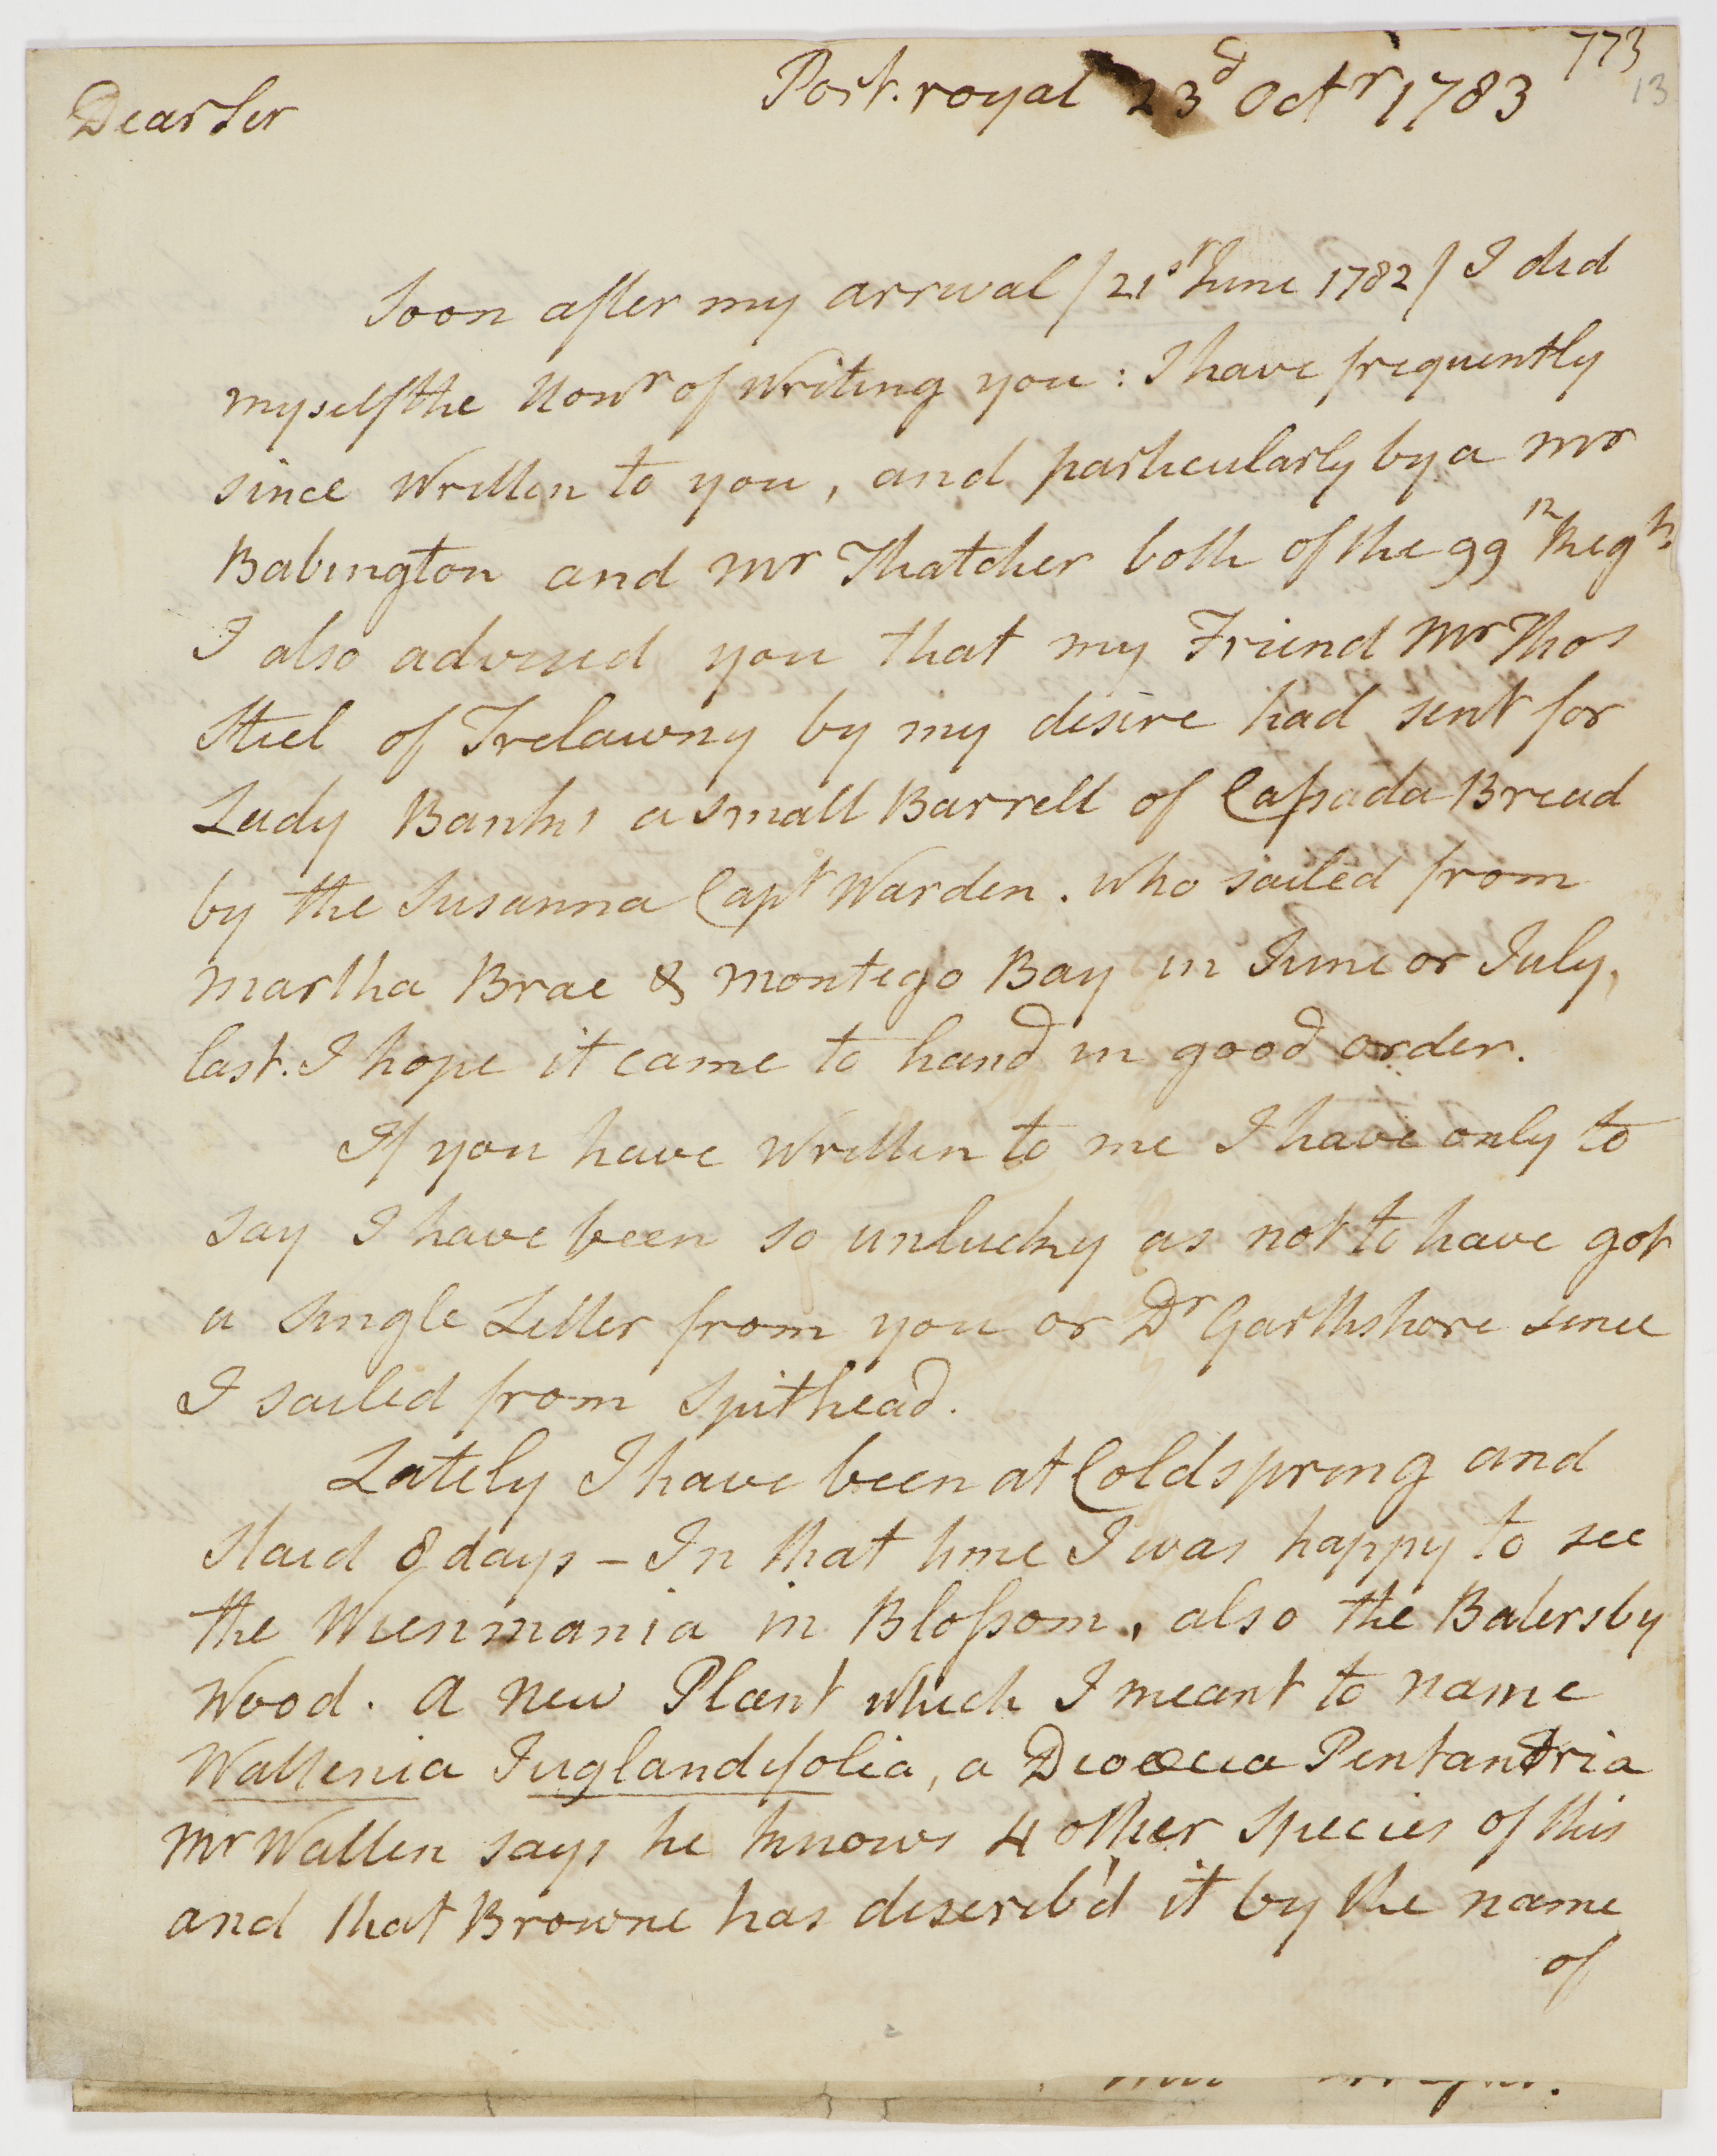 773
13
Port.royal 23d Octr 1783
Dear Sir
Soon after my arrival / 21st June 1782 / I did
myself the Honr of Writing you : I have frequently
since Written to you, and particularly by a Mr
Babington and Mr Thatcher both of the 99th Regt.
I also advised you that my Friend Mr Thos
Steel of Trelawny by my desire had sent for
Lady Banks a small Barrell of Cassada Bread
by the Susanna Capt Warden. who sailed from
Martha Brae & Montego Bay in June or July,
last. I hope it came to hand in good order.
If you have Written to me I have only to
say I have been so unlucky as not to have got
a Single Letter from you or Dr Garthshore since
I sailed from Spithead.
Lately I have been at Coldspring and
Staid 8 days – In that time I was happy to see
the Wienmania in Blossom, also the Balersby
Wood. A new Plant which I meant to name
Wallenia Juglandifolia, a Dioecia Pentandria
Mr Wallen says he knows 4 other Species of this
and that Browne has describ'd it by the name
of